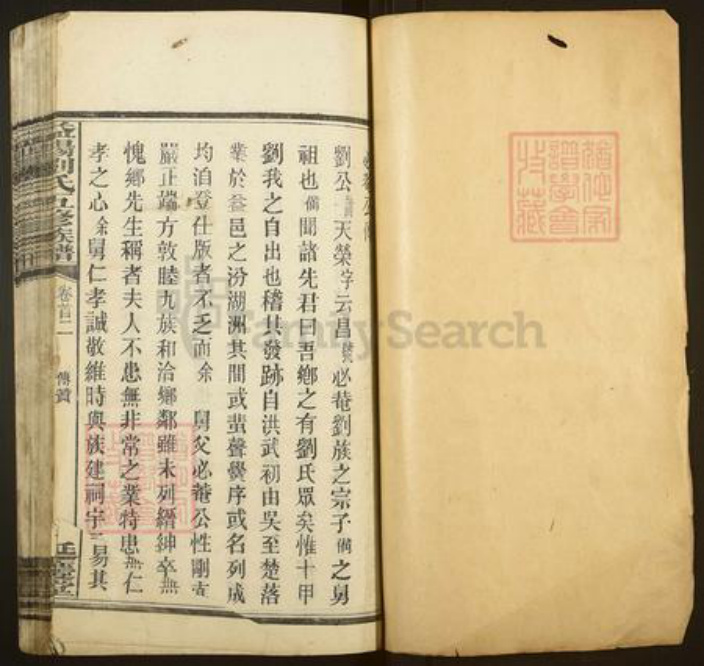 必菴公傳
劉公諱天榮字云昌號必菴劉族之宗子備之舅
祖也備聞諸先君曰吾鄉之有劉氏眾矣惟十甲
劉我之自出也稽其發跡自洪武初由吳至楚落
業於益邑之汾湖洲其間或蜚聲黌序或名列成
均洎登仕版者不乏而余舅父必菴公性剛直
嚴正端方敦睦九族和洽鄉鄰雖未列縉紳卒無
愧鄉先生稱者夫人不患無非常之業特患無仁
孝之心余舅仁孝誠敬維時與族建祠宇三易其
益陽劉氏五修族譜
卷首二
傳贊
FamilySearch